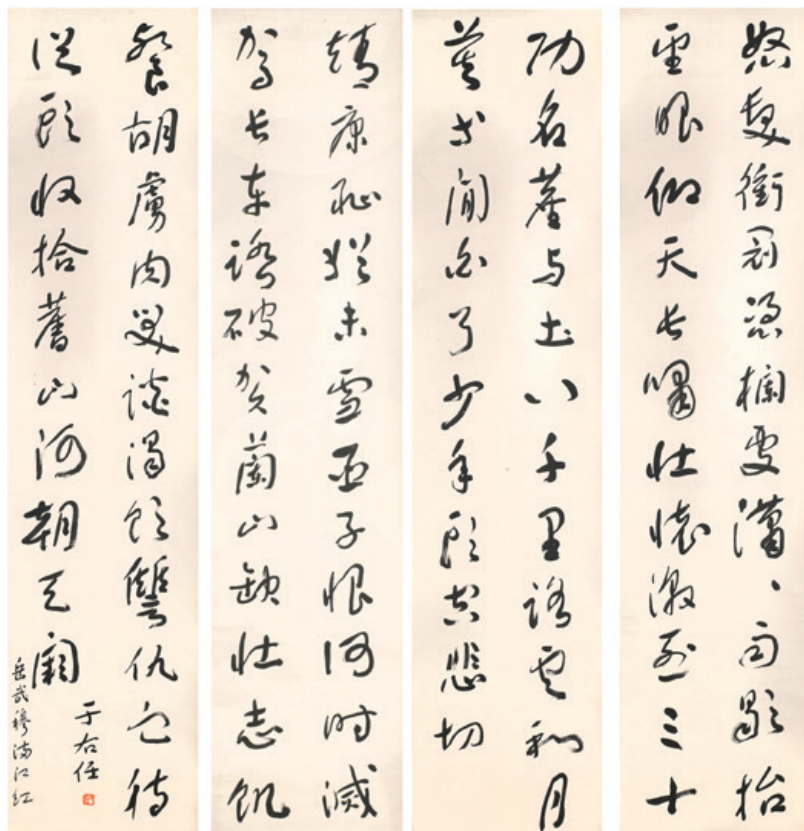 怒髮衝冠憑欄處瀟、雨歇抬
望眼仰天長嘯壯懷激烈三十
功名塵与土八千里路雲和月
莫等閒白了少年頭空悲切
靖康恥猶未雪臣子恨何时滅
駕長车踏破賀蘭山缺壯志飢
餐胡虜肉笑談渴飲讐仇血待
從頭收拾舊山河朝天闕
于右任
岳武穆滿江紅